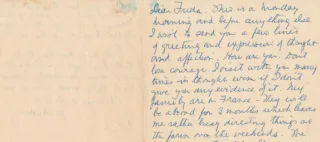 Dear Frida. This is a Monday
morning and before anything else
I wish to send you a few lines
of greeting and expression of thought
and affection. How are you. Don't
lose courage. I visit with you many
times in thought even if I don't
give you any evidence of it. My
family are in France. They will
be abroad for 3 months which leaves
me rather busy directing things at
the farm over the weekends. The